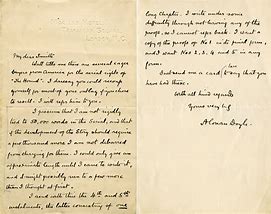 My dear Smith
Watt tells me there are several eager
buyers from America for the serial rights of
"The Hound". I daresay you could recoup
yourself for most of your outlay if you chose
to resell. I will refer him to you.
I presume that I am not rigidly
tied to 50,000 words in the Serial, and that
if the development of the Story should require
a few thousand more I am not debarred
from charging for them. I could only give an
approximate length until I came to write it,
and I might possibly run to a few more
than I thought at first.
I send with this the 4th and 5th
instalments, the latter consisting of one
long chapter. I write under some
difficulty through not having any of the
proofs, as I cannot refer back. I want a
copy of the proofs of No 1 in its final form,
and I want Nos 2, 3, 4 and 5 in any
form.
Just send me a card to say that you
have had these.
With all kind regards
Yours very truly
A Conan Doyle.